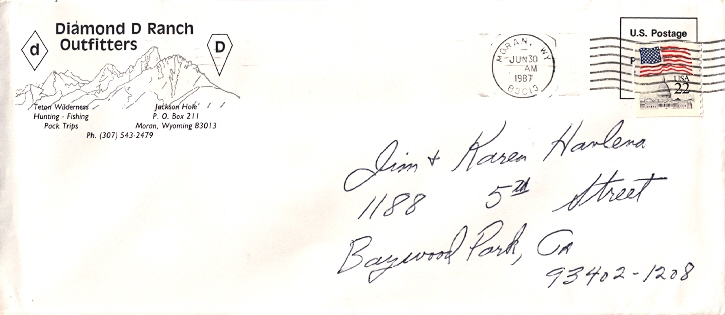 Diamond D Ranch
Outfitters
d
D
Teton Wilderness
Hunting - Fishing
Pack Trips
Jackson Hole
P. O. Box 211
Moran, Wyoming 83013
Ph. (307) 543-2479
MORAN, WY
JUN 30
AM
1987
83013
U.S. Postage
P
USA
22
Jim & Karen Havlena
1188 5th Street
Baywood Park, CA
93402-1208